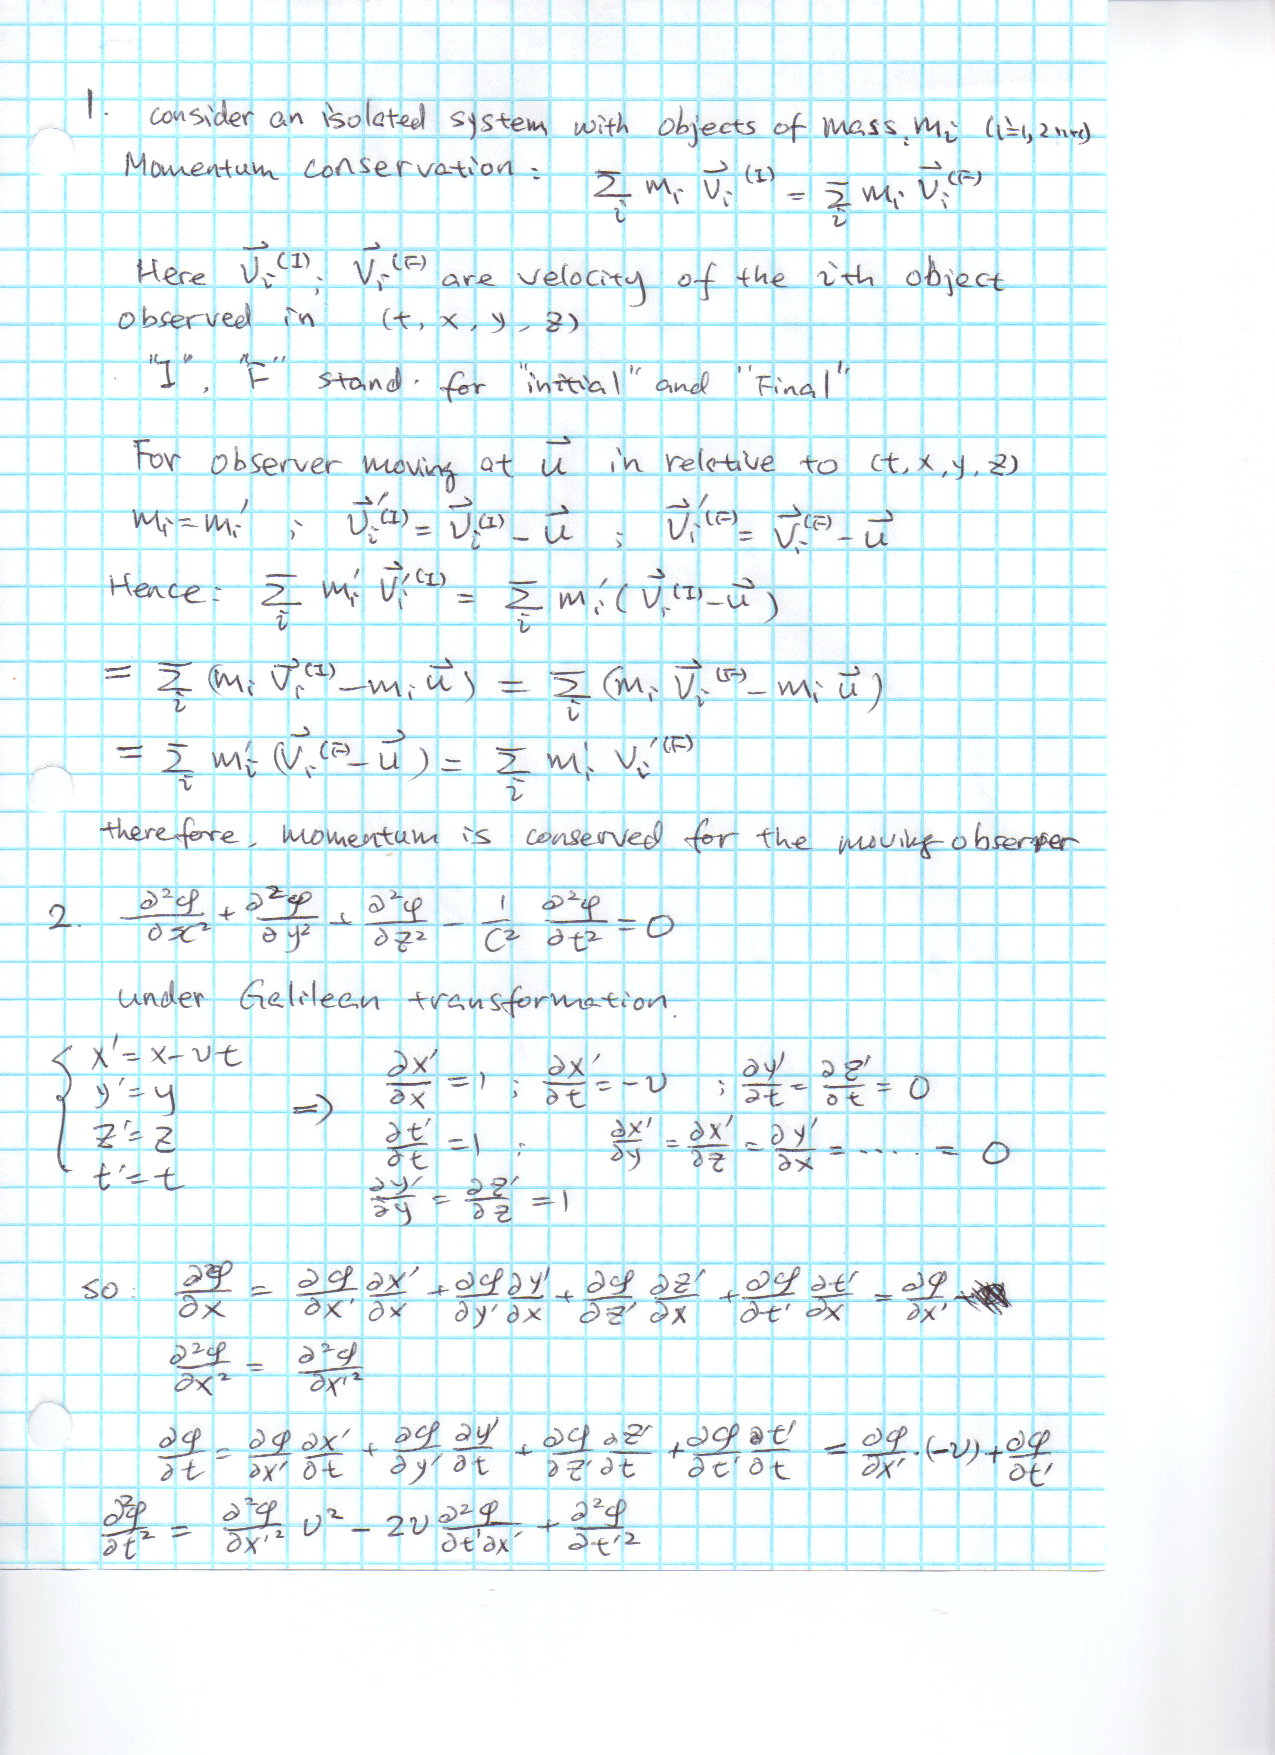 1. consider an isolated system with objects of mass m_i (i=1, 2 ...)
Momentum conservation: Σ_i m_i v⃗_i^(I) = Σ_i m_i v⃗_i^(F)
Here v⃗_i^(I), v⃗_i^(F) are velocity of the ith object
observed in (t, x, y, z)
"I", "F" stand for "initial" and "Final"
For observer moving at u⃗ in relative to (t, x, y, z)
m_i = m_i' ; v⃗_i'^(I) = v⃗_i^(I) - u⃗ ; v⃗_i'^(F) = v⃗_i^(F) - u⃗
Hence: Σ_i m_i' v⃗_i'^(I) = Σ_i m_i' (v⃗_i^(I) - u⃗)
= Σ_i (m_i v⃗_i^(I) - m_i u⃗) = Σ_i (m_i v⃗_i^(F) - m_i u⃗)
= Σ_i m_i' (v⃗_i^(F) - u⃗) = Σ_i m_i' v_i'^(F)
therefore, momentum is conserved for the moving observer
2. ∂²φ/∂x² + ∂²φ/∂y² + ∂²φ/∂z² - 1/c² ∂²φ/∂t² = 0
under Galilean transformation.
{ x' = x - vt
y' = y
z' = z
t' = t
=> ∂x'/∂x = 1 ; ∂x'/∂t = -v ; ∂y'/∂t = ∂z'/∂t = 0
∂t'/∂t = 1 ; ∂x'/∂y = ∂x'/∂z = ∂y'/∂x = ..... = 0
∂y'/∂y = ∂z'/∂z = 1
so: ∂φ/∂x = ∂φ/∂x' ∂x'/∂x + ∂φ/∂y' ∂y'/∂x + ∂φ/∂z' ∂z'/∂x + ∂φ/∂t' ∂t'/∂x = ∂φ/∂x'
∂²φ/∂x² = ∂²φ/∂x'²
∂φ/∂t = ∂φ/∂x' ∂x'/∂t + ∂φ/∂y' ∂y'/∂t + ∂φ/∂z' ∂z'/∂t + ∂φ/∂t' ∂t'/∂t = ∂φ/∂x' · (-v) + ∂φ/∂t'
∂²φ/∂t² = ∂²φ/∂x'² v² - 2v ∂²φ/∂t'∂x' + ∂²φ/∂t'²